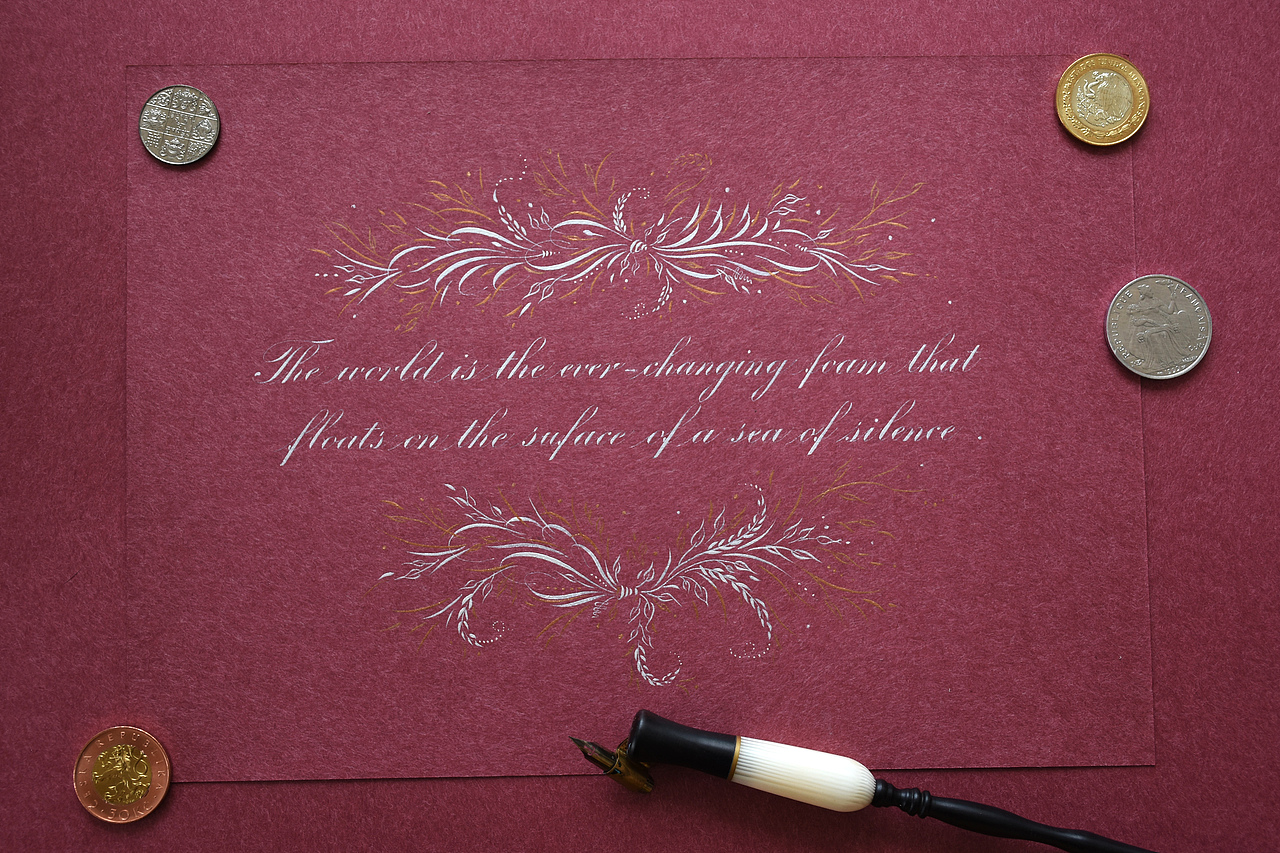 The world is the ever-changing foam that
floats on the suface of a sea of silence .